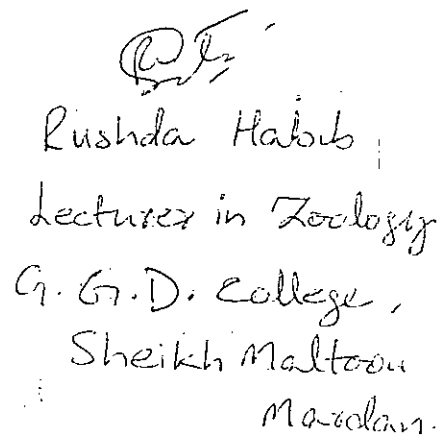 Rushda Habib
Lecturer in Zoology
G. G. D. College,
Sheikh Maltoon
Mardan.